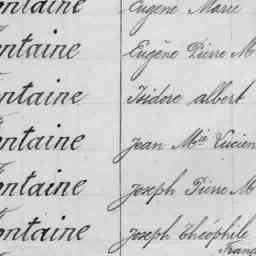 ontaine Eugène Marie
ontaine Eugène Pierre M
ontaine Isidore albert
ontaine Jean Mie Lucien
ontaine Joseph Pierre M
ontaine Joseph Théophile
Franç